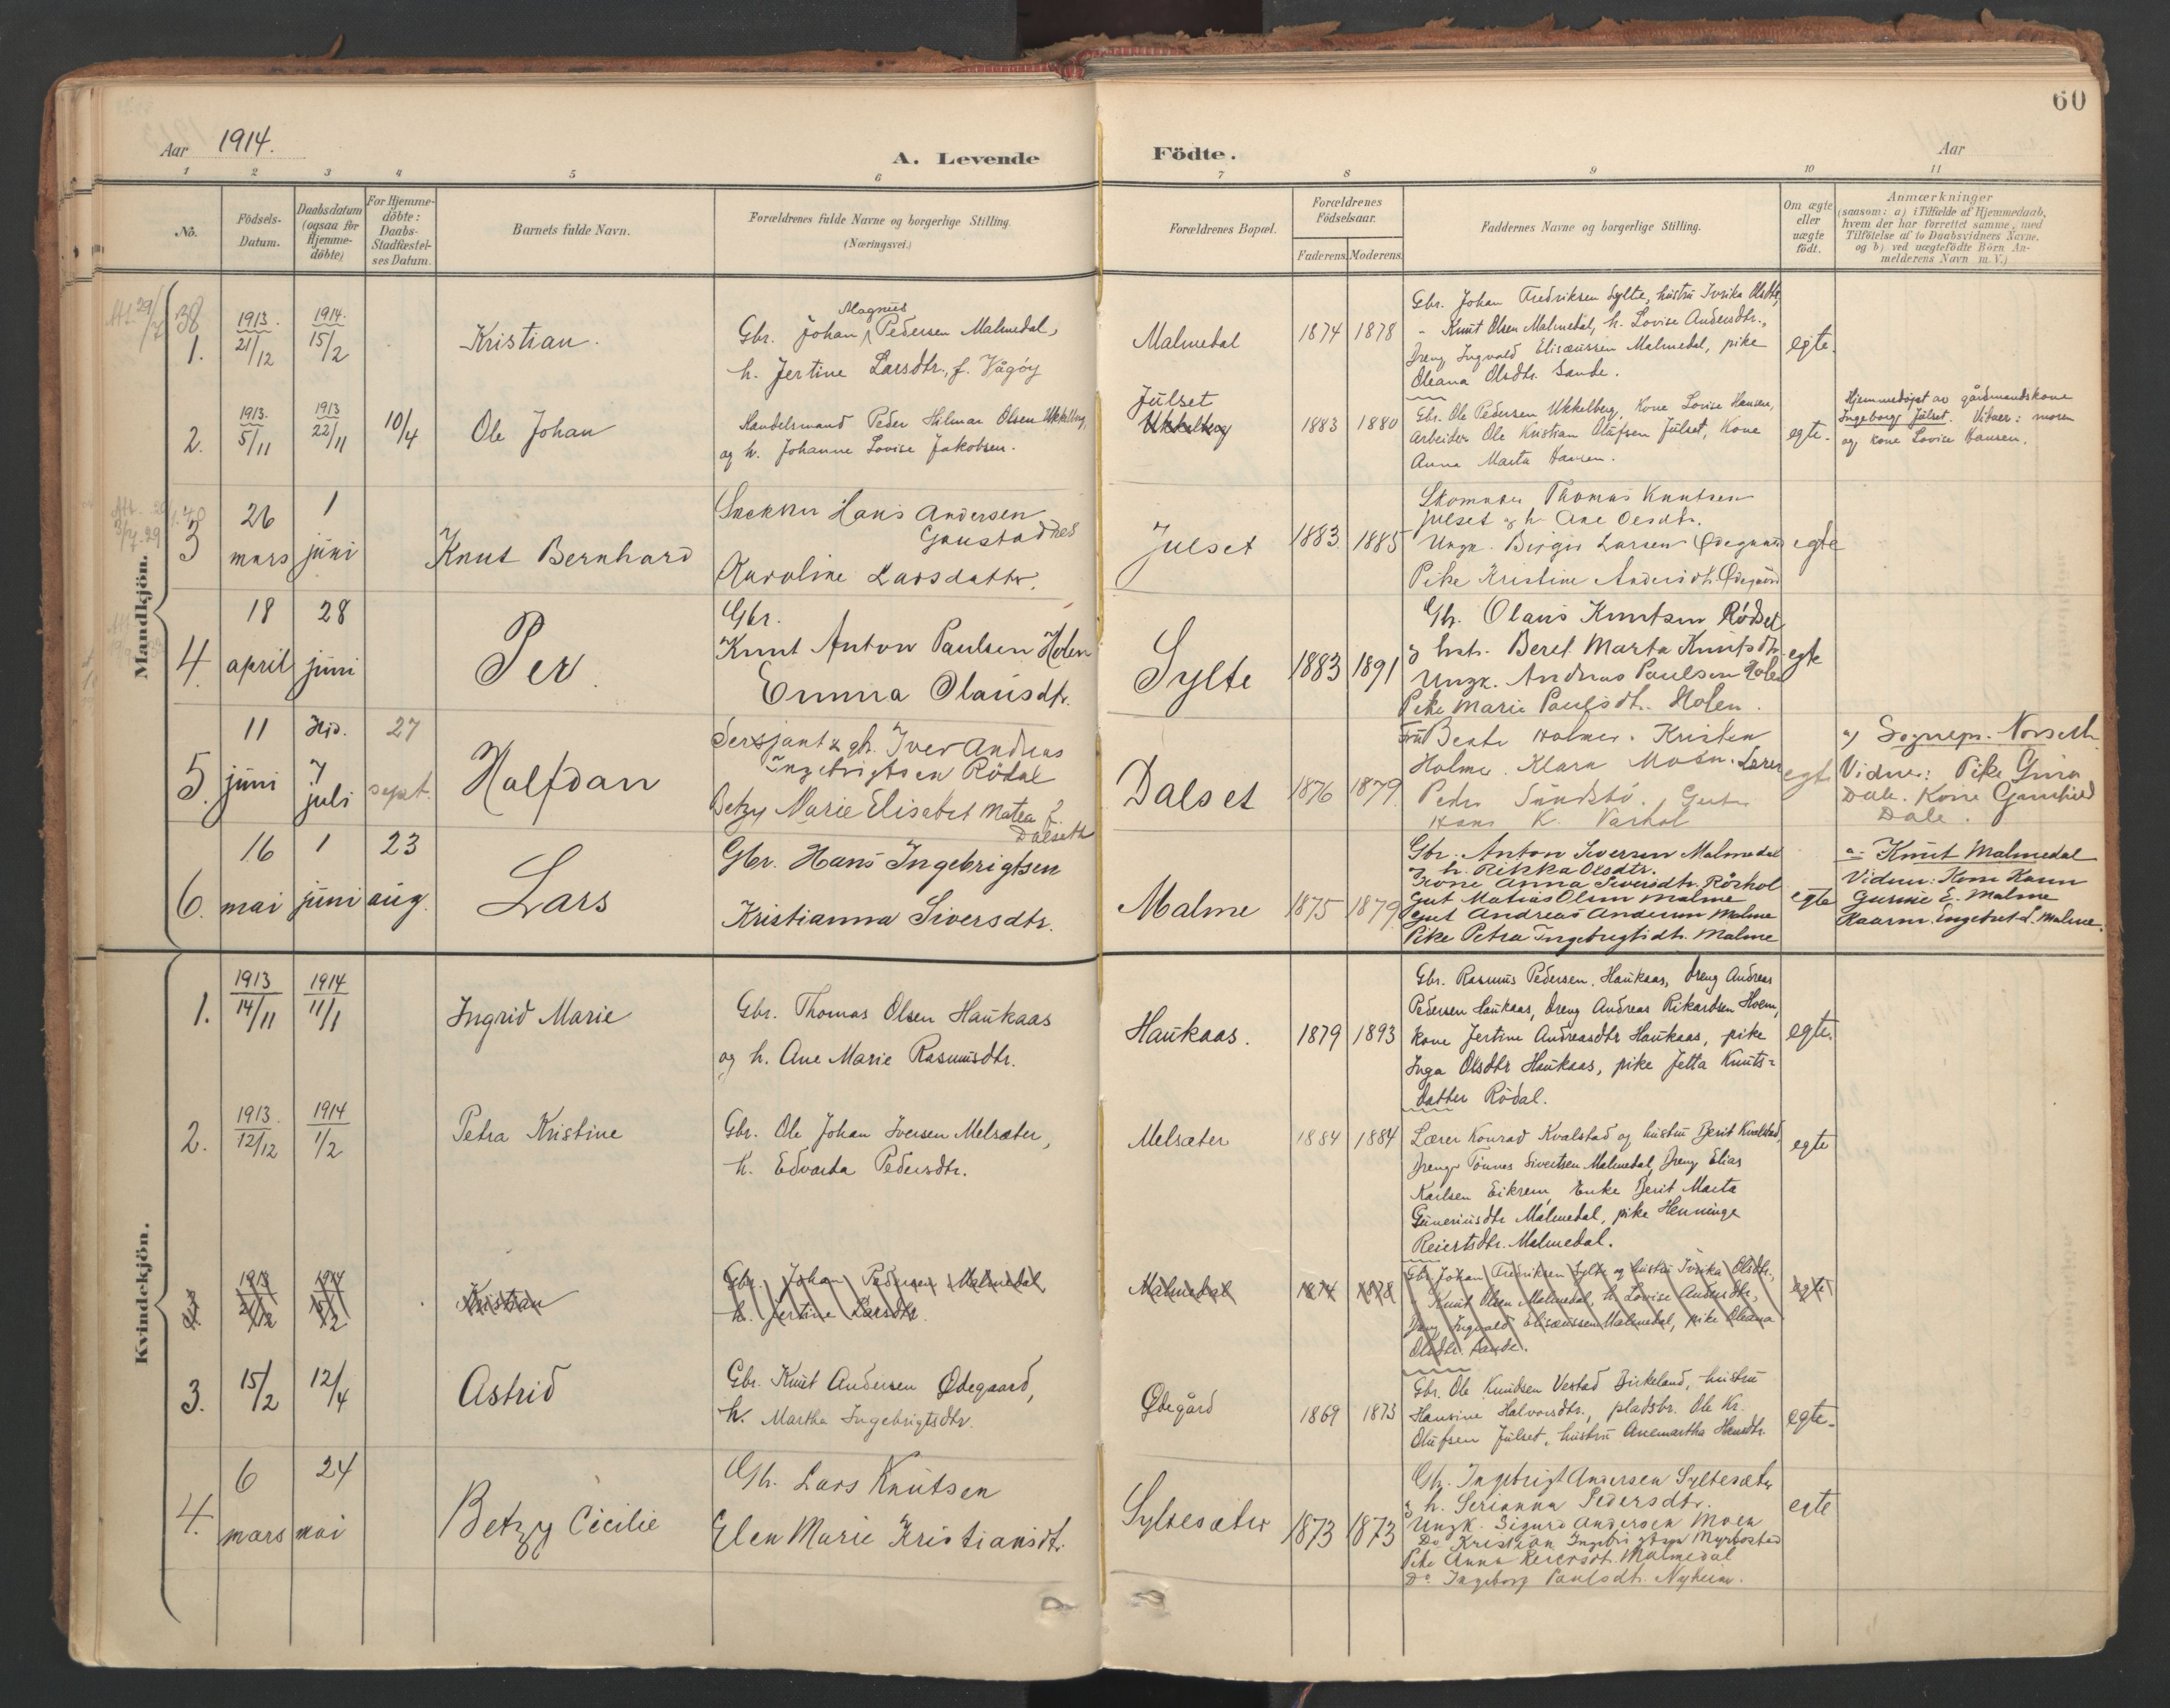 60
Aar 1914.
A. Levende Födte.
Aar
1 2 3 4 5 6 7 8 9 10 11
No.
Födsels-
Datum.
Daabsdatum
(ogsaa for
Hjemme-
döbte)
For Hjemme-
döbte:
Daabs-
Stadfæstel-
ses Datum.
Barnets fulde Navn.
Forældrenes fulde Navne og borgerlige Stilling.
(Næringsvei.)
Forældrenes Bopæl.
Forældrenes
Födselsaar.
Faderens. Moderens.
Faddernes Navne og borgerlige Stilling.
Om ægte
eller
uægte
födt.
Anmærkninger
(saasom: a) i Tilfælde af Hjemmedaab,
hvem der har forrettet samme, med
Tilföielse af to Daabsvidners Navne,
og b) ved uægtefödte Börn An-
melderens Navn m. V.)
Mandkjön.
38
1.
1913.
21/12
1914.
15/2
Kristian.
Magnus
Gbr. Johan Pedersen Malmedal,
h. Jertine Larsdtr., f. Vågöy
Malmedal
1874 1878
Gbr. Johan Fredriksen Sylte, hustru Ivrika Olsdtr.,
" Knut Olsen Malmedal, h. Lovise Andersdtr.,
Dreng Ingvald Elisæussen Malmedal, pike
Oleana Olsdtr. Sande.
egte.
2.
1913.
5/11
1913
22/11
10/4
Ole Johan
Handelsmand Peder Hilmar Olsen Ukkelberg,
og h. Johanne Lovise Jakobsen.
Julset
Ukkelberg
1883 1880
Gbr. Ole Pedersen Ukkelberg, Kone Lovise Hansen,
arbeider Ole Kristian Olufsen Julset, Kone
Anna Marta Hansen.
egte.
Hjemmedöpt av gårdmandskone
Ingeborg Julset. Vitner: moren
og kone Lovise Hansen.
3
26
mars
1
juni
Knut Bernhard
Snekker Hans Andersen
Gaustadnes
Karoline Larsdatter.
Julset
1883. 1885
Skomaker Thomas Knutsen
Julset og h. Ane Olsdtr.
Ungk. Birger Larsen Ødegaard
Pike Kristine Andersdtr. Ødegaard
egte
4.
18
april
28
juni
Per.
Gbr.
Knut Anton Paulsen Holen
Emma Olausdtr.
Sylte
1883 1891
Gbr. Olaus Knutsen Rödset
og hst. Beret Marta Knutsdtr.
Ungk. Andreas Paulsen Holen
Pike Marie Paulsdtr. Holen.
egte
5.
11
juni
Hjd.
7
juli
27
sept.
Halfdan
Sersjant & gb. Iver Andreas
Ingebrigtsen Rödal
Betzy Marie Elisabet Matea f.
Dalseth
Dalset
1876 1879
Fru Beate Holmer. Kristen
Holmer. Klara Moen. Lærer
Peder Sundsbö. Gut
Hans K. Varhol
egte
a) Sognepr. Norseth.
Vidner: Pike Gina
Dale. Kone Gunhild
Dale.
6.
16
mai
1
juni
23
aug.
Lars
Gbr. Hans Ingebrigtsen
Kristianna Siversdtr.
Malme
1875 1879
Gbr. Anton Iversen Malmedal
og h. Rikka Olsdtr.
Kone Anna Siversdtr. Rörhol
Gut Matias Olsen Malme
Gut Andreas Andersen Malme
Pike Petra Ingebrigtsdtr. Malme
egte
a. Knut Malmedal
Vidner: Kone Karen
Gurine E. Malme
Kaarm. Engebret L. Malme.
Kvindekjön.
1.
1913
14/11
1914
11/1
Ingrid Marie
Gbr. Thomas Olsen Haukaas
og h. Ane Marie Rasmusdtr.
Haukaas.
1879 1893
Gbr. Rasmus Pedersen Haukaas, dreng Andreas
Pedersen Haukaas, dreng Andreas Rikardsen Hoem,
Kone Jertine Andreasdtr Haukaas, pike
Inga Olsdtr Haukaas, pike Jetta Knuts-
datter Rödal.
egte.
2.
1913.
12/12
1914
1/2
Petra Kristine
Gbr. Ole Johan Iversen Melsæter,
h. Edvarda Pedersdtr.
Melsæter
1884 1884
Lærer Konrad Kvalstad og hustru Berit Kvalstad,
Dreng Tönnes Sivertsen Malmedal, Dreng Elias
Karlsen Eikrem, Enke Berit Marta
Guneriusdtr Malmedal, pike Henninge
Reiertsdtr. Malmedal.
egte
3
1913
21/12
1914
15/2
Kristian
Gbr. Johan Pedersen Malmedal
h. Jertine Larsdtr.
Malmedal
1874 1878
Gbr. Johan Fredriksen Sylte og hustru Ivrika Olsdtr.,
" Knut Olsen Malmedal, h. Lovise Andersdtr.,
Dreng Ingvald Elisæussen Malmedal, pike Oleana
Olsdtr. Sande.
egte
3.
15/2
12/4
Astrid
Gbr. Knut Andersen Ødegaard,
h. Martha Ingebrigtsdtr.
Ødegård
1869 1873
Gbr. Ole Knudsen Vestad Birkeland, hustru
Hansine Halvorsdtr., pladsbr. Ole Kr.
Olufsen Julset, hustru Anemartha Hansdtr.
egte.
4.
6
mars
24
mai
Betzy Cecilie
Gbr. Lars Knutsen
Elen Marie Kristiansdtr.
Syltesæter
1873 1873
Gbr. Ingebrigt Andersen Syltesæter
og h. Serianna Pedersdtr.
Ungk. Sigurd Andersen Moen
Do Kristian Ingebrigtsen Myrbostad
Pike Anna Reiersdtr. Malmedal
Do Ingeborg Paulsdtr. Nyheim.
egte